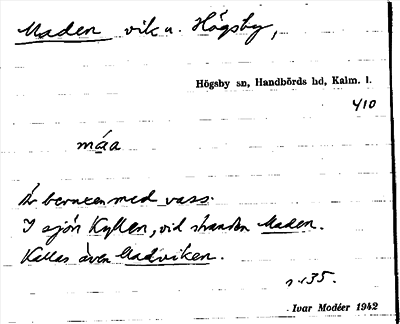 Maden vik u. Högsby,
Högsby sn, Handbörds hd, Kalm. l.
410
máa
Är bevuxen med vass.
I sjön Kyllen, vid stranden Maden.
Kallas även Madviken.
s. 135.
Ivar Modéer 1942